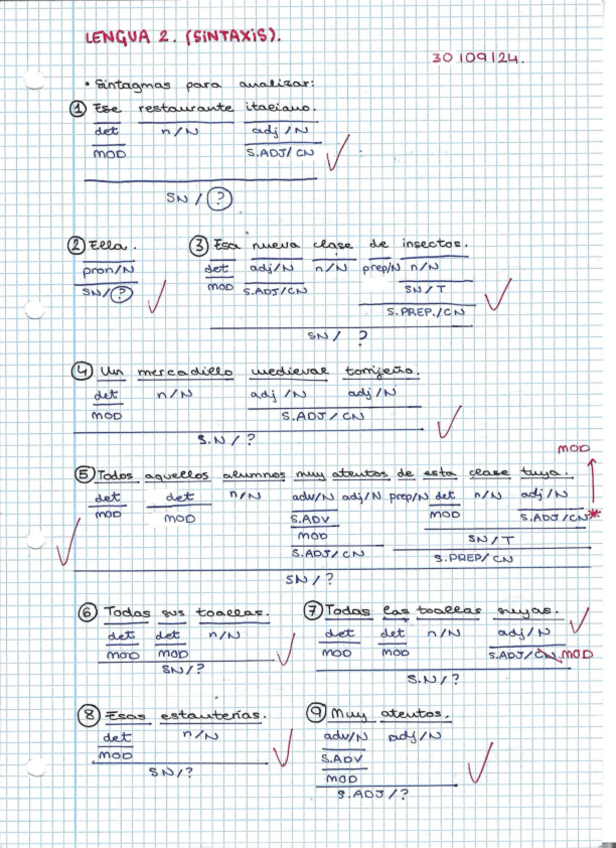 LENGUA 2. (SINTAXIS).
30/09/24.
• Sintagmas para analizar:
① Ese restaurante italiano.
det n/N adj/N
MOD S.ADJ/CN
SN/?
② Ella. ③ Esa nueva clase de insectos.
pron/N det adj/N n/N prep/N n/N
SN/? MOD S.ADJ/CN SN/T
S.PREP./CN
SN/ ?
④ Un mercadillo medieval torrijeño.
det n/N adj/N adj/N
MOD S.ADJ/CN
S.N/?
MOD
⑤ Todos aquellos alumnos muy atentos de esta clase tuya.
det det n/N adv/N adj/N prep/N det n/N adj/N
MOD MOD S.ADV MOD S.ADJ/CN*
MOD SN/T
S.ADJ/CN S.PREP/CN
SN/?
⑥ Todas sus toallas. ⑦ Todas las toallas suyas.
det det n/N det det n/N adj/N
MOD MOD MOD MOD S.ADJ/CN MOD
SN/? S.N/?
⑧ Esas estanterías. ⑨ Muy atentos.
det n/N adv/N adj/N
MOD S.ADV
SN/? MOD
S.ADJ/?